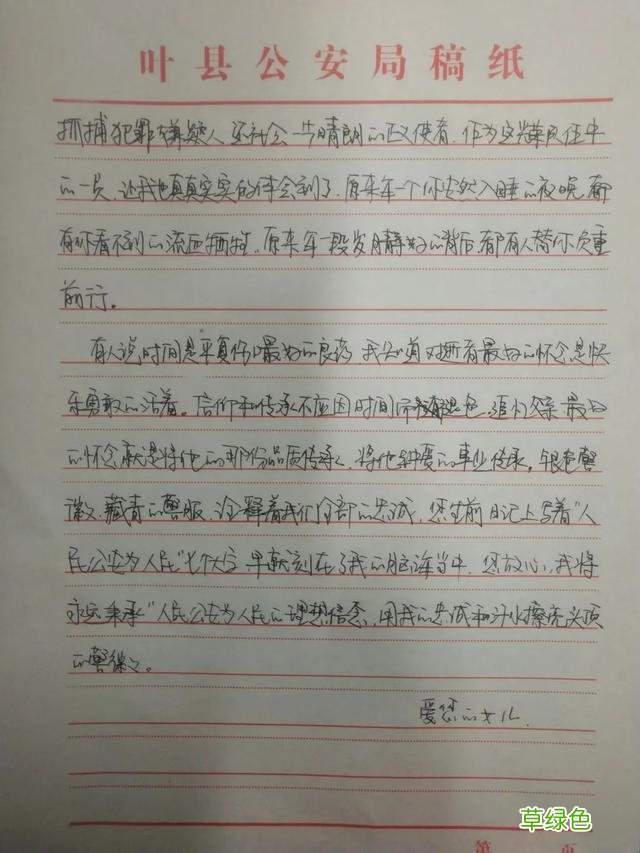 叶县公安局稿纸
抓捕犯罪嫌疑人 还社会一片晴朗的正义使者. 作为安兴荣民任中
的一员, 让我也真真实实的体会到了. 原来每一个你安然入睡的夜晚, 都
有你看不到的流血牺牲. 原来每一段岁月静好的背后, 都有人替你负重
前行。
有人说, 时间是平复伤口最好的良药, 我知道对逝者最好的怀念是快
乐勇敢的活着。信仰和传承不应因时间而褪色. 追忆父亲最好
的怀念就是将他的那份品质传承, 将他钟爱的事业传承. 银色警
徽、藏青的警服. 诠释着我们全部的忠诚. 您生前日记上写着"人
民公安为人民"七个大字 早就刻在了我的脑海当中. 您放心, 我将
永远秉承"人民公安为人民的理想信念, 用我的忠诚和汗水擦亮头顶
的警徽。
爱您的女儿.
草绿色
第 页